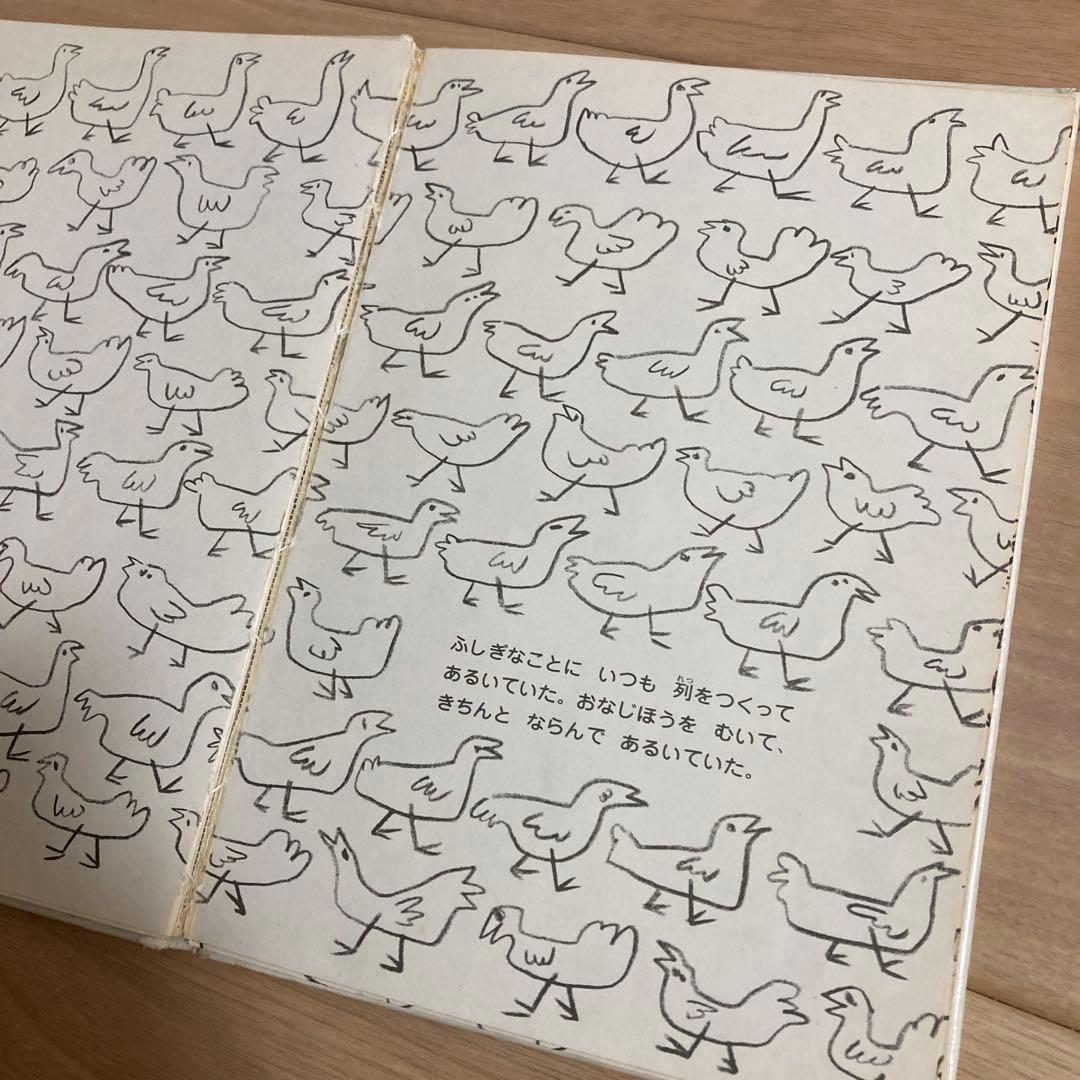 ふしぎなことに いつも 列をつくって
あるいていた。おなじほうを むいて、
きちんと ならんで あるいていた。